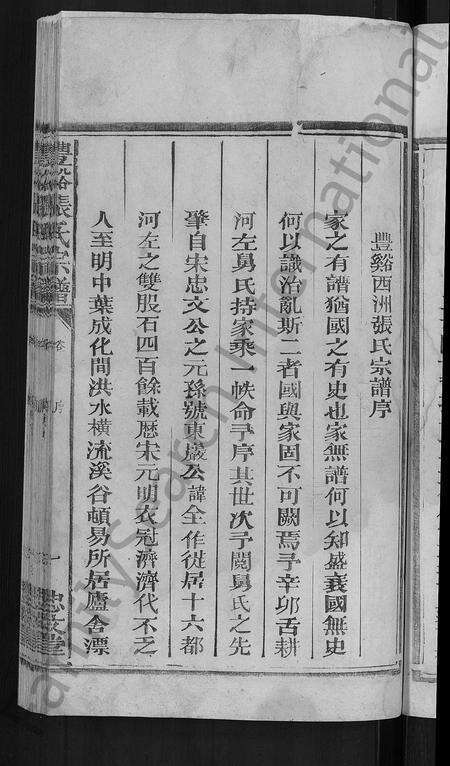 豐谿西洲張氏宗譜序
家之有譜猶國之有史也家無譜何以知盛衰國無史
何以識治亂斯二者國與家固不可闕焉予辛卯舌耕
河左舅氏持家乘一帙命予序其世次予閱舅氏之先
肇自宋忠文公之元孫號東巖公諱全作徙居十六都
河左之雙股石四百餘載歷宋元明衣冠濟濟代不乏
人至明中葉成化間洪水橫流溪谷頓易所居廬舍漂
豐谿張氏宗譜
卷
序
一
忠文堂
FamilySearch International